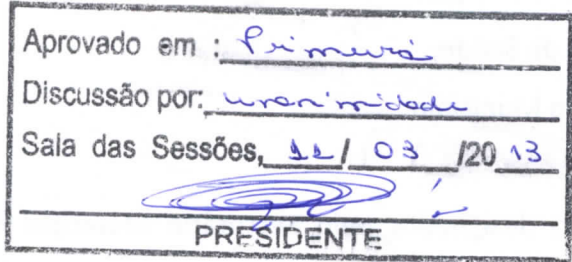 Aprovado em : Primeira
Discussão por: unanimidade
Sala das Sessões, 11/ 03 /20 13
PRESIDENTE